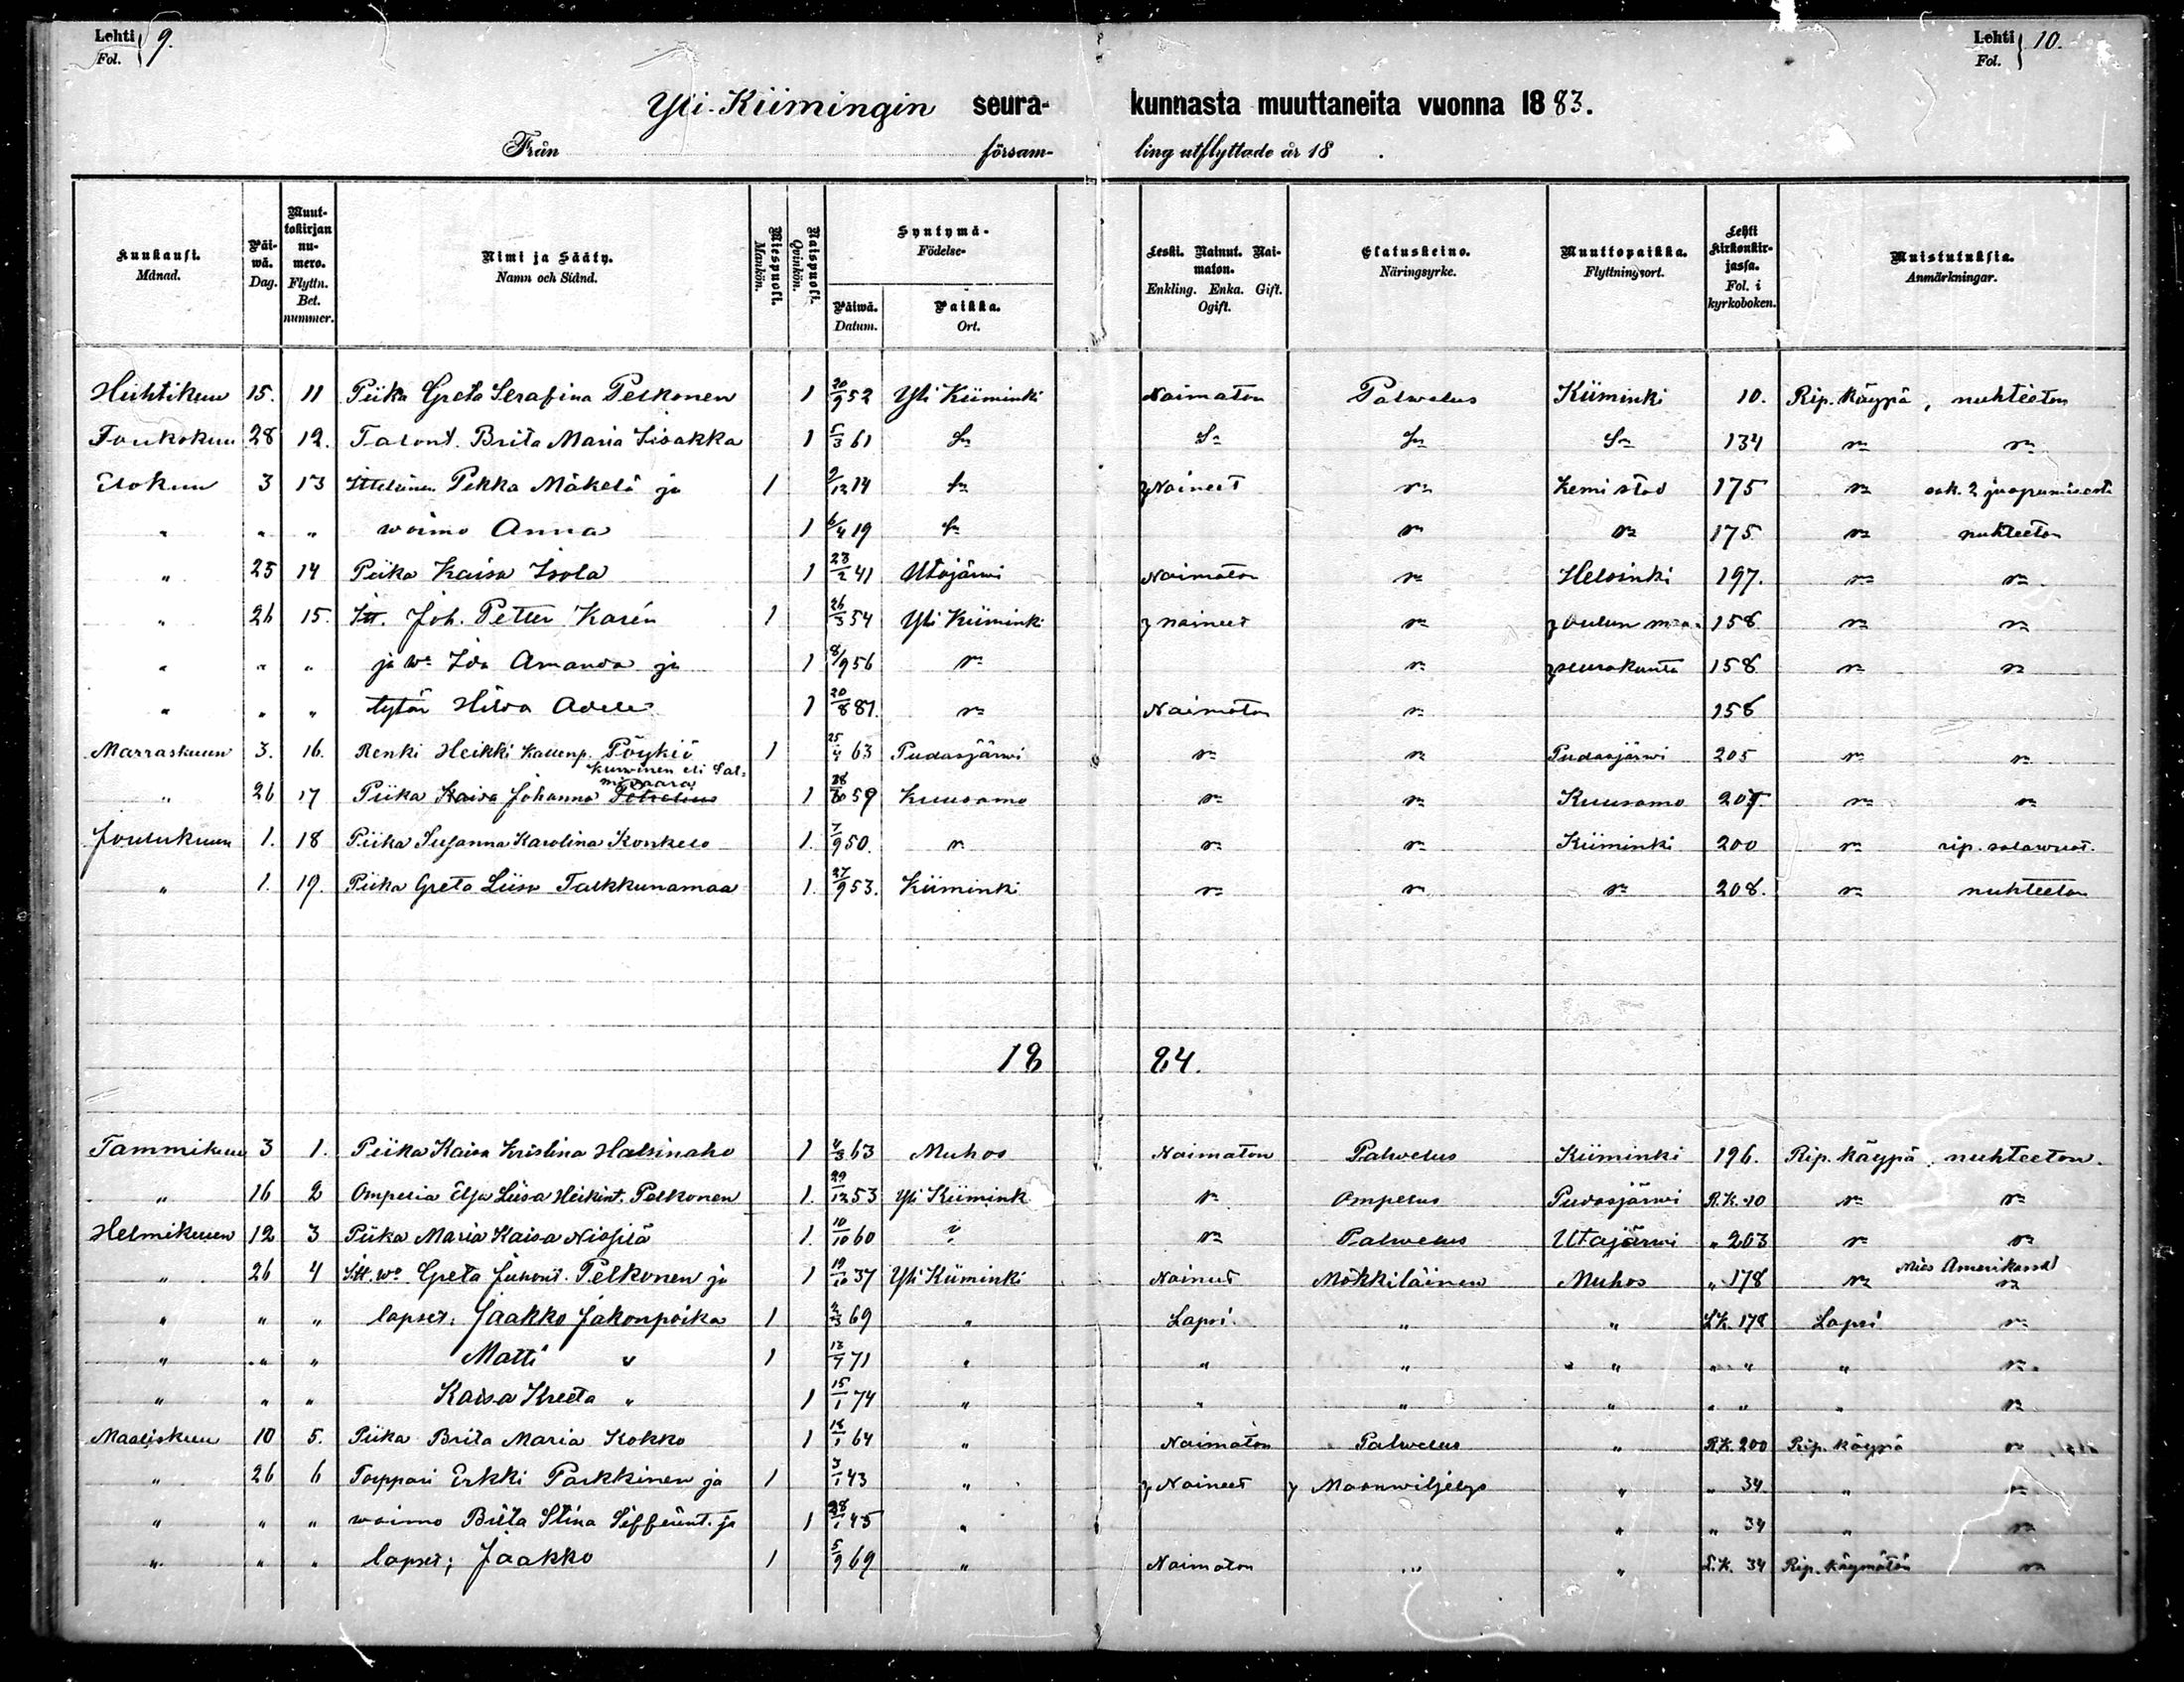 Lehti Fol. 9.
Lehti Fol. 10.
Yli-Kiimingin seura- kunnasta muuttaneita vuonna 1883.
Från försam- ling utflyttade år 18 .
Kuukausi. Månad. | Päi-wä. Dag. | Muut-tokirjan nu-mero. Flyttn. Bet. nummer. | Nimi ja Sääty. Namn och Stånd. | Miespuoli. Mankön. | Naispuoli. Qvinkön. | Syntymä- Födelse- Päiwä. Datum. | Paikka. Ort. | Leski. Nainut. Nai-maton. Enkling. Enka. Gift. Ogift. | Elatuskeino. Näringsyrke. | Muuttopaikka. Flyttningsort. | Lehti Kirkonkir-jassa. Fol. i kyrkoboken. | Muistutuksia. Anmärkningar.
Huhtikuu 15. 11 Piika Greta Serafina Pelkonen 1 20/9 52 Yli Kiiminki Naimaton Palwelus Kiiminki 10. Rip. käypä, nuhteeton
Toukokuu 28 12. Talont. Brita Maria Iisakka 1 5/3 61 Sn Sn Sn Sn 134 sn sn
Elokuu 3 13 Pekka Mäkelä ja 1 2/12 14 sn Naineet sn Kemi stad 175 sn sak. 2 juopumisesta
" " " waimo Anna 1 6/4 19 sn sn sn 175 sn nuhteeton
" 25 14 Piika Kaisa Isola 1 23/2 41 Utajärwi Naimaton sn Helsinki 197. sn sn
" 26 15. Itt. Joh. Petter Karén 1 26/3 54 Yli Kiiminki naineet sn Oulun maa- 158 sn sn
" " " ja wo Ida Amanda ja 1 8/9 56 sn sn seurakunta 158 sn sn
" " " tytär Hilda Adele 1 20/8 81. sn Naimaton sn 158
Marraskuun 3. 16. Renki Heikki Kallenp. Pöykiö 1 25/4 63 Pudasjärwi sn sn Pudasjärwi 205 sn sn
Kurwinen eli Sal-
miwaara
" 26 17 Piika Kaisa Johanna 1 59 Kuusamo sn sn Kuusamo 207. sn sn
Joulukuun 1. 18 Piika Susanna Karolina Konkelo 1. 7/9 50. sn sn sn Kiiminki 200 sn rip. salawuot.
" 1. 19. Piika Greta Liisa Talkkunamaa 1. 27/9 53. Kiiminki sn sn sn 208. sn nuhteeton
18 84.
Tammikuu 3 1. Piika Kaisa Kristina Halsinaho 1 4/3 63 Muhos Naimaton Palwelus Kiiminki 196. Rip. käypä nuhteeton.
" 16 2 Ompelia Elsa Liisa Heikint. Pelkonen 1. 29/12 53 Yli Kiimink sn Ompelus Pudasjärwi R.K. 10 sn sn
Helmikuun 12 3 Piika Maria Kaisa Nissilä 1. 10/10 60 " sn Palwelus Utajärwi " 203 sn sn
" 26 4 Itt. wo Greta Juhont. Pelkonen ja 1 19/10 37 Yli Kiiminki Nainut Mökkiläinen Muhos " 178 sn Mies Amerikassa sn
" " " lapset: Jaakko Jakonpoika 1 2/3 69 " Lapsi " " L.K. 178 Lapsi sn
" " " Matti " 1 71 " " " " " " " sn
" " " Kaisa Kreeta " 1 15/1 74 " " " " " " " sn
Maaliskuu 10 5. Piika Brita Maria Kokko 1 18/1 64 " Naimaton Palwelus " R.K. 200 Rip. käypä sn
" 26 6 Torppari Erkki Parkkinen ja 1 3/1 43 " Naineet Maanwiljelys " " 34 " sn
" " " waimo Brita Stina Siffrént. ja 1 28/1 45 " " " 34 " sn
" " " lapset; Jaakko 1 5/9 69 " Naimaton " " L.K. 34 Rip. käymätön sn